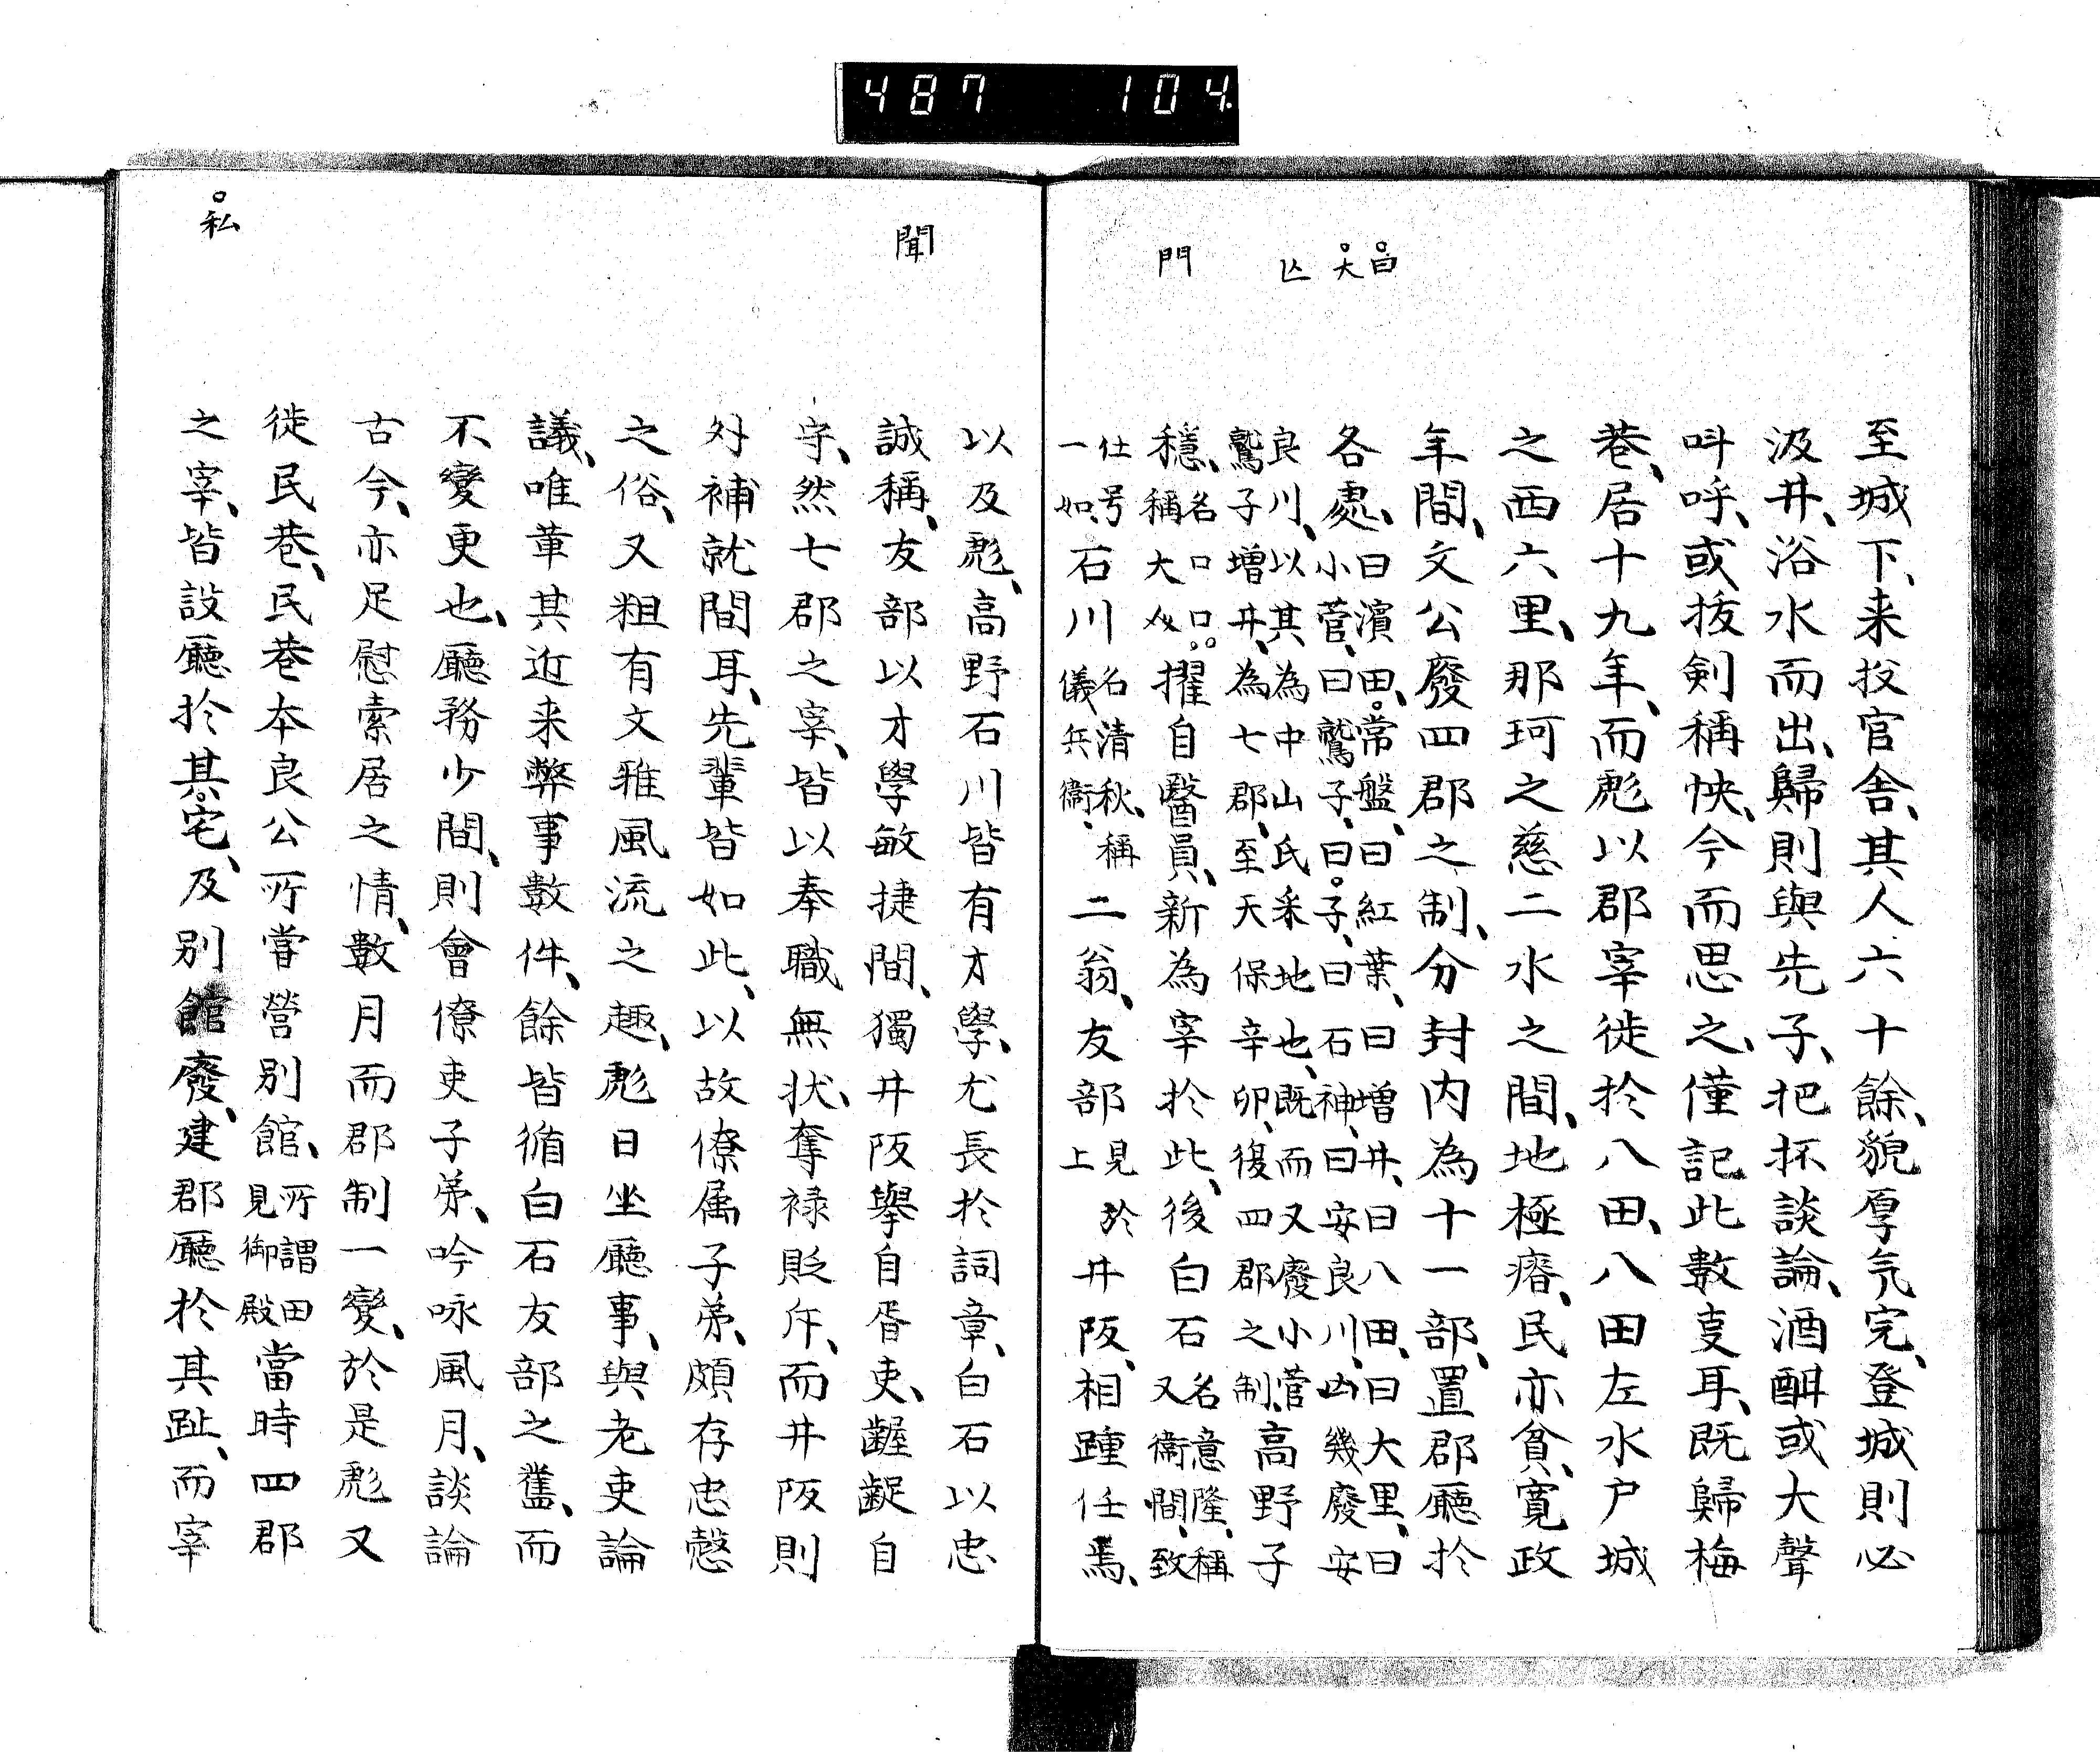 487 104
昌
大
亾
門
至城下、来投官舎、其人六十餘、貌厚気完、登城則必
汲井、浴水而出、歸則與先子、把杯談論、酒酣或大聲
呌呼、或抜剣稱快、今而思之、僅記此數事耳、既歸梅
巷、居十九年、而彪以郡宰徙於八田、八田左水戸城
之西六里、那珂之慈二水之間、地極瘠、民亦貧、寛政
年間、文公廢四郡之制、分封内為十一部、置郡廳於
各處、
曰濱田、常盤、曰紅葉、曰増井、曰八田、曰大里、曰
小菅、曰鷲子、曰子、曰石神、曰安良川、凶幾廢安
良川、以其為中山氏采地也、既而又廢小菅、
鷲子増井、為七郡、至天保辛卯、復四郡之制、
高野子
穩、
名口口
稱大
擢自醫員、新為宰於此、後白石
名意隆、稱
又衛門、致
仕号
一如、
石川
名清秋、稱
儀兵衛、
二翁、友部
見於
上
井阪、相踵任焉、
聞
私
以及彪、高野石川皆有才學、尤長於詞章、白石以忠
誠稱、友部以才學敏捷間、獨井阪擧自胥吏、齷齪自
守、然七郡之宰、皆以奉職無状、奪禄貶斥、而井阪則
外補就間耳、先輩皆如此、以故僚属子弟、頗存忠慤
之俗、又粗有文雅風流之趣、彪日坐廳事、與老吏論
議、唯革其近来弊事數件、餘皆循白石友部之舊、而
不變更也、廳務少間、則會僚吏子弟、吟咏風月、談論
古今、亦足慰索居之情、數月而郡制一變、於是彪又
徙民巷、民巷本良公所嘗營別館、
所謂田
見御殿
當時四郡
之宰、皆設廳於其宅、及別館廢、建郡廳於其趾、而宰